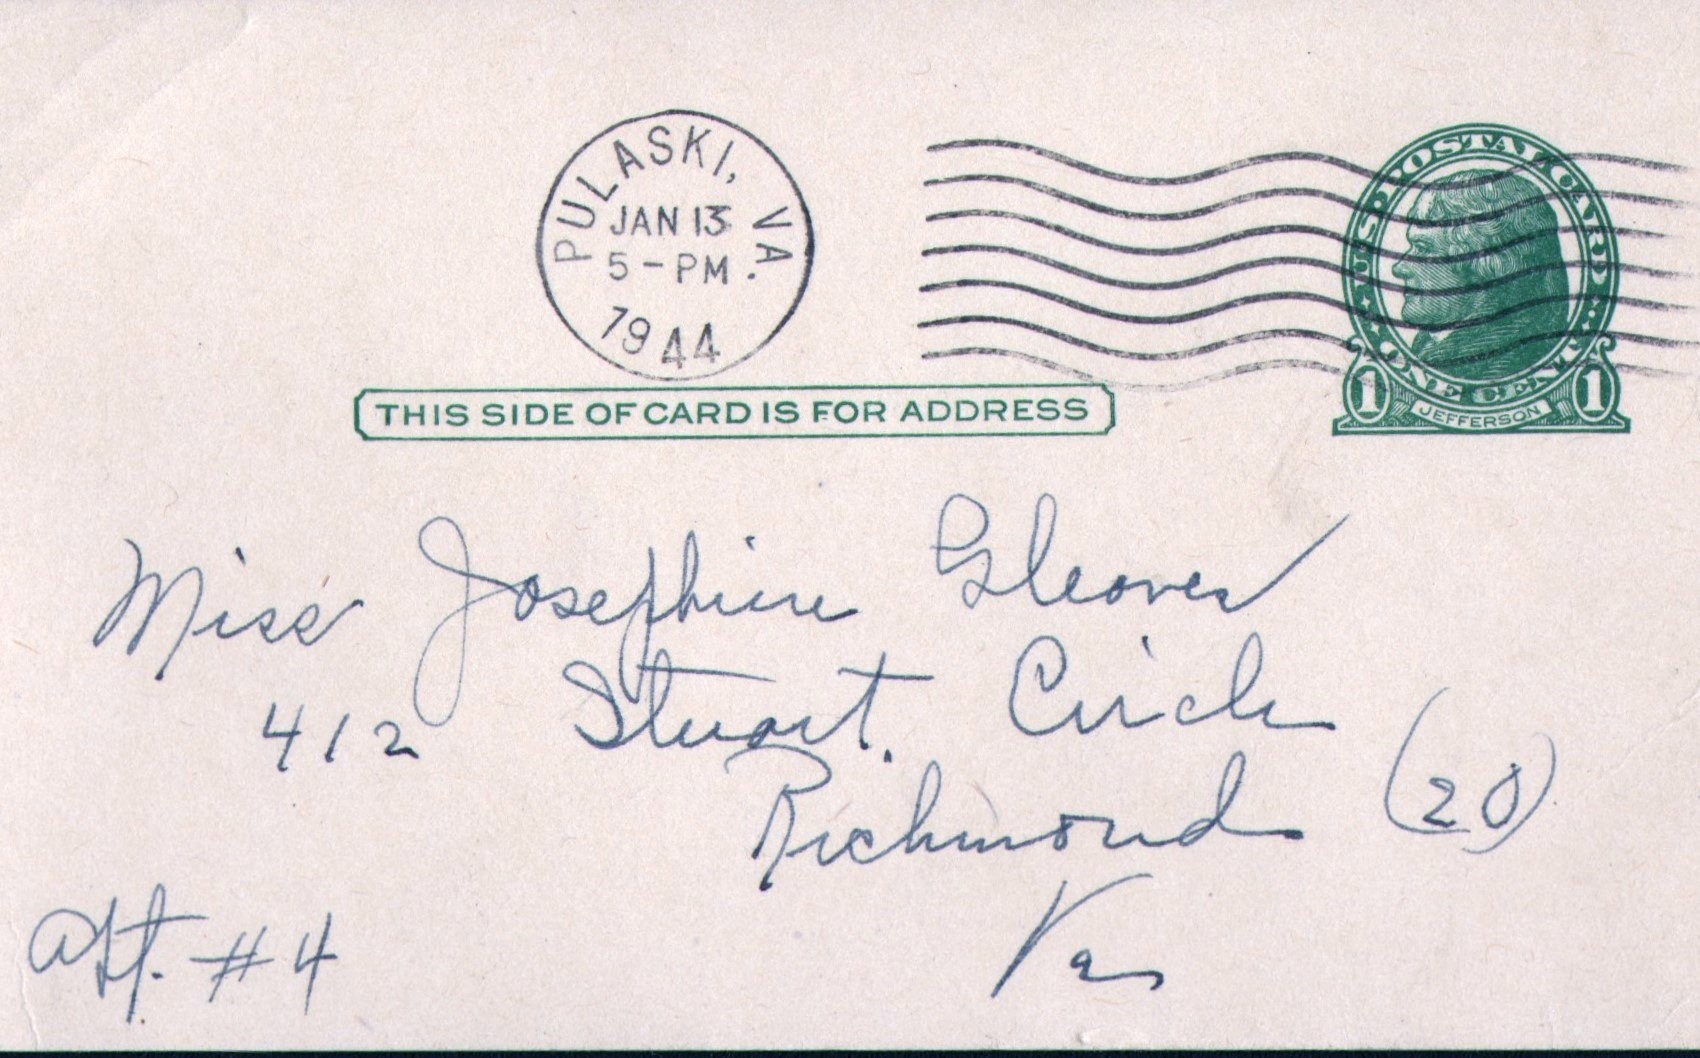 PULASKI, VA.
JAN 13
5-PM
1944
U.S. POSTAL CARD
ONE CENT
1 JEFFERSON 1
THIS SIDE OF CARD IS FOR ADDRESS
Miss Josephine Gleaves
412 Stuart. Circle
Richmond (20)
Va
Apt. #4